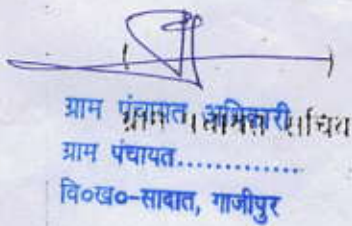 ग्राम पंचायत अधिकारी
ग्राम पंचायत.............
वि०ख०-सादात, गाजीपुर